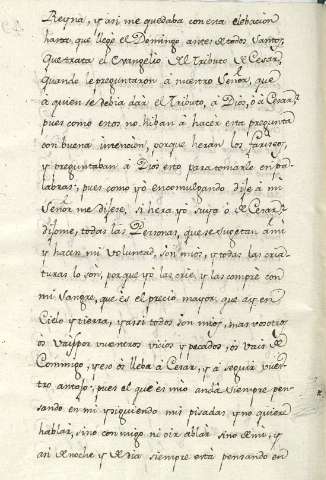 Reyna, y asi me quedaba con esta elebacion
hasta que llegó el Domingo antes de todos Santos,
que trata el Evangelio del Tributo de Cesar,
quando le preguntaron à nuestro Señor, que
à quien se debia dar el Tributo, à Dios, ò à Cesar?
pues como estos no hiban à hacer esta pregunta
con buena intencion, porque heran los fariseos,
y preguntaban à Dios esto para tomarle en pa-
labras; pues como yò en comulgando dije à mi
Señor me dijese, si hera yò suya ò de Cesar?
dijome, todas las Personas, que se sugetan à mi
y hacen mi voluntad, son mios, y todas las cria-
turas lo son, porque yò las crie, y las compre con
mi Sangre, que es el precio mayor, que ay en
Cielo y tierra, y assi todos son mios, mas vosotros
òs vais por vuestros vicios y pecados, òs vais de
Conmigo, y eso òs lleba à Cesar, y à seguir vues-
tro antojo; pues el que es mio anda siempre pen-
sando en mi y siguiendo mis pisadas, y no quiere
hablar, sino conmigo, ni oir ablar, sino de mi, y
asi de noche y de dia siempre està pensando en